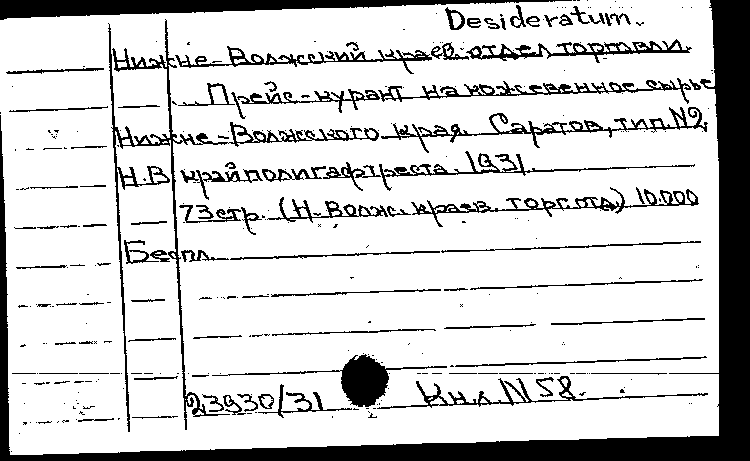 Desideratum.
Нижне-Волжский краев. отдел торговли.
... Прейс-курант на кожевенное сырье
Нижне-Волжского края. Саратов, тип. N2
Н.В крайполиграфтреста. 1931.
73 стр. (Н-Волж. краев. торг.отд) 10.000
Беспл.
23930/31 Кн.л. N 58.